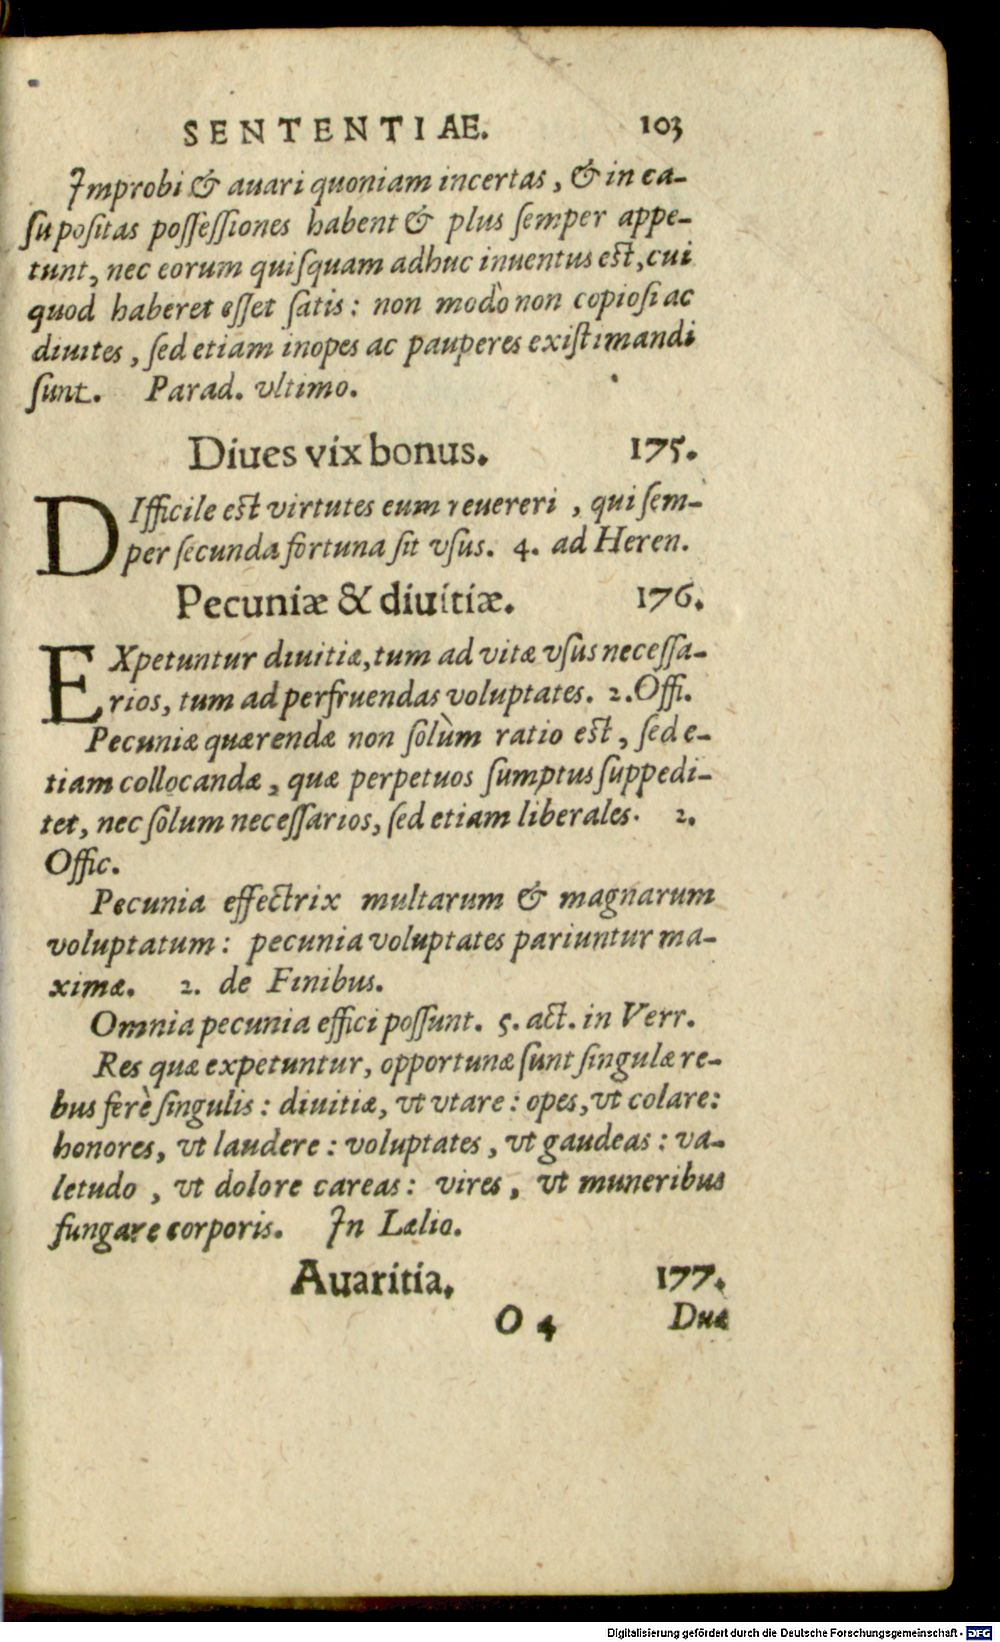 SENTENTIAE. 103
Improbi & auari quoniam incertas, & in ca-
su positas possessiones habent & plus semper appe-
tunt, nec eorum quisquam adhuc inuentus est, cui
quod haberet esset satis: non modò non copiosi ac
diuites, sed etiam inopes ac pauperes existimandi
sunt. Parad. vltimo.
Diues vix bonus. 175.
DIfficile est virtutes eum reuereri, qui sem-
per secunda fortuna sit vsus. 4. ad Heren.
Pecuniæ & diuitiæ. 176.
EXpetuntur diuitiæ, tum ad vitæ vsus necessa-
rios, tum ad perfruendas voluptates. 2. Offi.
Pecuniæ quærendæ non solùm ratio est, sed e-
tiam collocandæ, quæ perpetuos sumptus suppedi-
tet, nec solum necessarios, sed etiam liberales. 2.
Offic.
Pecunia effectrix multarum & magnarum
voluptatum: pecunia voluptates pariuntur ma-
ximæ. 2. de Finibus.
Omnia pecunia effici possunt. 5. act. in Verr.
Res quæ expetuntur, opportunæ sunt singulæ re-
bus ferè singulis: diuitiæ, vt vtare: opes, vt colare:
honores, vt laudere: voluptates, vt gaudeas: va-
letudo, vt dolore careas: vires, vt muneribus
fungare corporis. In Lælio.
Auaritia. 177.
O 4 Duæ
Digitalisierung gefördert durch die Deutsche Forschungsgemeinschaft - DFG